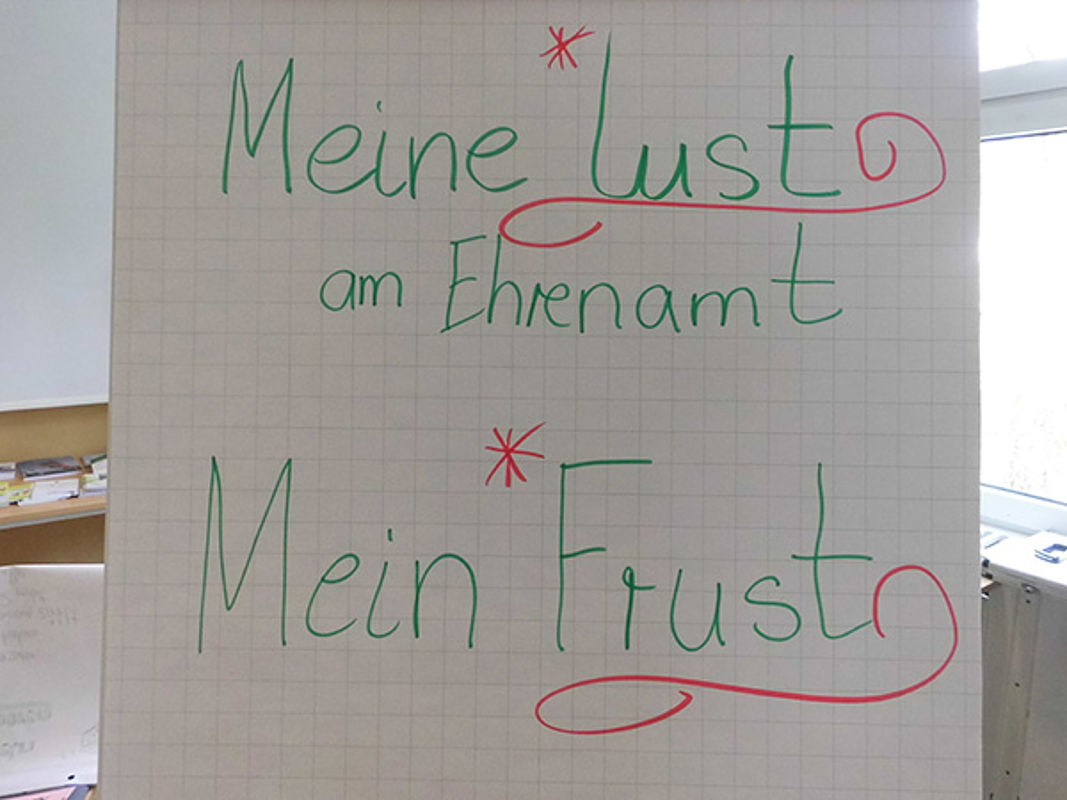 Meine *Lust
am Ehrenamt
Mein *Frust